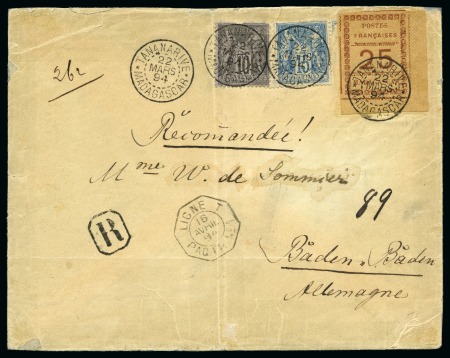 TANANARIVE
22
MARS
94
MADAGASCAR
10
15
POSTES
FRANÇAISES
25
26r
Recomandée!
Mme W. de Sommier
89
R
LIGNE T
16
AVRIL
94
Baden-Baden
Allemagne